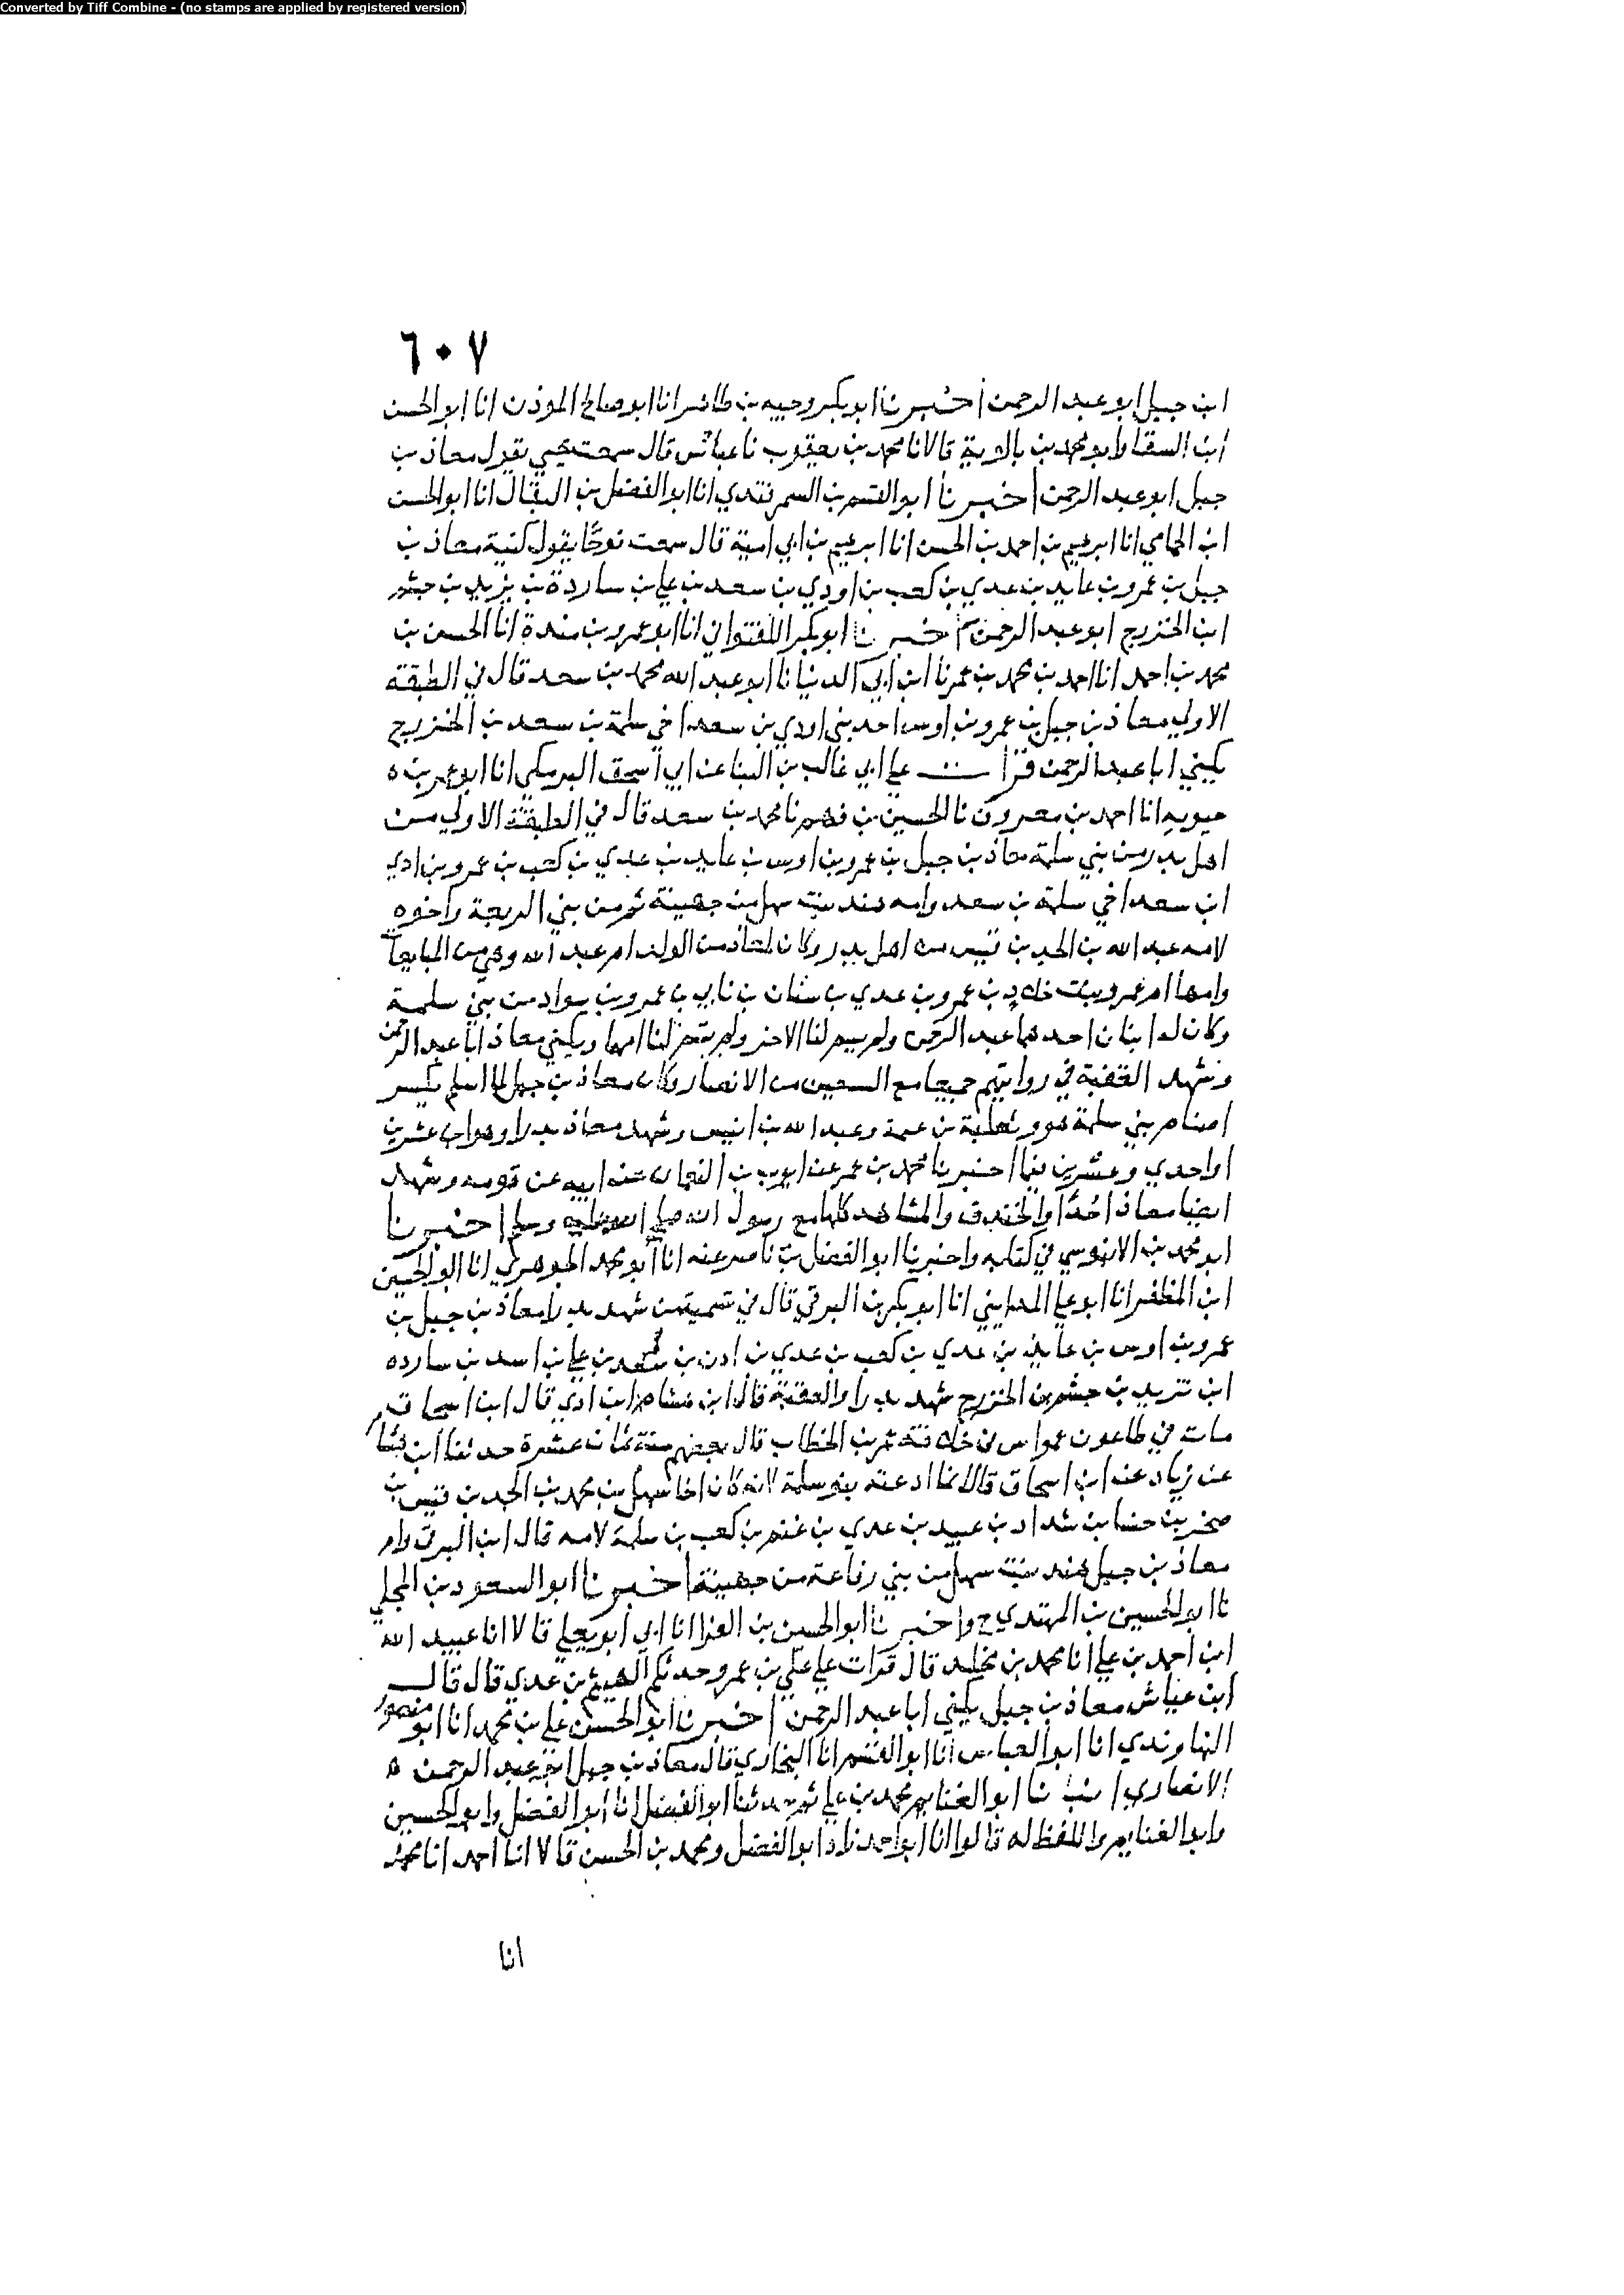 Converted by Tiff Combine - (no stamps are applied by registered version)
٦٠٧
ابن جبل ابو عبد الرحمن اخبرنا ابو بكر وجيه بن طاهر انا ابو صالح الموذن انا ابو الحسن
ابن السقا وابو محمد بن بالوية قالا نا محمد بن يعقوب نا عباس قال سمعت يحيي يقول معاذ بن
جبل ابو عبد الرحمن اخبرنا ابو القسم بن السمرقندي انا ابو الفضل بن البقال انا ابو الحسن
ابن الحمامي انا ابرهيم بن احمد بن الحسن انا ابرهيم بن ابي امية قال سمعت نوحًا يقول كنية معاذ بن
جبل بن عمرو بن عايد بن عدي بن كعب بن اودي بن سعد بن علي بن ساردة بن يزيد بن جشم
ابن الخزرج ابو عبد الرحمن اخبرنا ابو بكر اللفتواني انا ابو عمرو بن مندة انا الحسن بن
محمد بن احمد انا احمد بن محمد بن عمر نا ابن ابي الدنيا نا ابو عبد الله محمد بن سعد قال في الطبقة
الاولي معاذ بن جبل بن عمرو بن اوس احد بني اودي بن سعد اخي سلمة بن سعد بن الخزرج
يكني ابا عبد الرحمن قرات علي ابي غالب بن البنا عن ابي اسحق البرمكي انا ابو عمر بن ه
حيويه انا احمد بن معروف نا الحسين بن فهم نا محمد بن سعد قال في الطبقة الاولي من
اهل بدر من بني سلمة معاذ بن جبل بن عمرو بن اوس بن عايد بن عدي بن كعب بن عمرو بن ادي
ابن سعد اخي سلمة بن سعد وامه هند بنت سهل من جهينة ثم من بني الربعة واخوه
لامه عبد الله بن الجد بن قيس من اهل بدر وكان لمعاذ من الولد ام عبد الله وهي من المبايعات
وامها ام عمرو بنت خلاد بن عمرو بن عدي بن سنان بن نابي بن عمرو بن سواد من بني سلمة
وكان له ابنان احدهما عبد الرحمن ولم يسم لنا الاخر ولم يتحز لنا امها ويكني معاذ ابا عبد الرحمن
وشهد العقبة في روايتهم جميعا مع السبعين من الانصار وكان معاذ بن جبل لما اسلم يكسر
اصنام بني سلمة هو وثعلبة بن عمة وعبد الله بن انيس وشهد معاذ بدرا وهو ابن عشرين
او احدي وعشرين فيما اخبرنا محمد بن عمر عن ايوب بن النعمان عن ابيه عن قومه وشهد
ايضا معاذ احُدًا والخندق والمشاهد كلها مع رسول الله صلي الله عليه وسلم اخبرنا
ابو محمد بن الابنوسي في كتابه واخبرنا ابو الفضل بن ناصر عنه انا ابو محمد الجوهري انا ابو الحسين
ابن المظفر انا ابو علي المدايني انا ابو بكر بن البرقي قال في تسمية من شهد بدرا معاذ بن جبل بن
عمرو بن اوس بن عايذ بن عدي بن كعب بن عدي بن ادن بن سعد بن علي بن اسد بن سارده
ابن تزيد بن جشم بن الخزرج شهد بدرا والعقبة قال ابن هشام ابن ادي قال ابن اسحاق
مات في طاعون عمواس في خلافة عمر بن الخطاب قال بعضهم سنة ثمان عشرة حدثنا ابن هشام
عن زياد عن ابن اسحاق قال انما ادعته بنو سلمة لانه كان اخا سهل بن محمد بن الجد بن قيس بن
صخر بن خنسا بن شداد بن عبيد بن عدي بن غنم بن كعب بن سلمة لامه قال ابن البرقي وام
معاذ بن جبل هند بنت سهل من بني رفاعة من جهينة اخبرنا ابو السعود بن المجلي
نا ابو الحسين بن المهتدي ح واخبرنا ابو الحسين بن الفرا انا ابي ابو يعلي قالا انا عبيد الله
ابن احمد بن علي انا محمد بن مخلد قال قرات علي علي بن عمرو حدثكم الهيثم بن عدي قال قال
ابن عياش معاذ بن جبل يكني ابا عبد الرحمن اخبرنا ابو الحسن علي بن محمد انا ابو منصور
النهاوندي انا ابو العباس انا ابو القسم انا البخاري قال معاذ بن جبل ابو عبد الرحمن ه
الانصاري انبانا ابو الغنايم محمد بن علي ثم حدثنا ابو الفضل انا ابو الفضل وابو الحسين
وابو الغنايم واللفظ له قالوا انا ابو احمد زاد ابو الفضل ومحمد بن الحسن قالا انا احمد انا محمد
انا